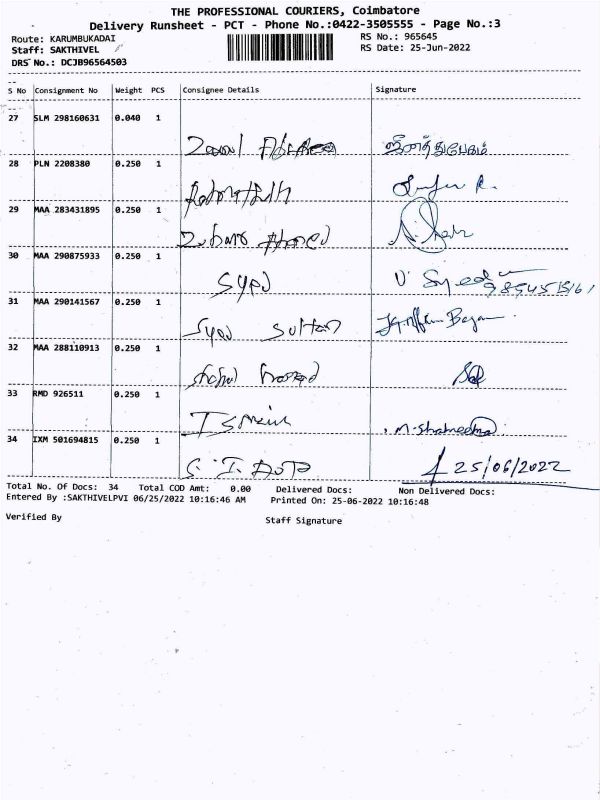 THE PROFESSIONAL COURIERS, Coimbatore
Delivery Runsheet - PCT - Phone No.:0422-3505555 - Page No.:3
Route: KARUMBUKADAI RS No.: 965645
Staff: SAKTHIVEL RS Date: 25-Jun-2022
DRS No.: DCJB96564503
S No Consignment No Weight PCS Consignee Details Signature
27 SLM 298160631 0.040 1
28 PLN 2208380 0.250 1
29 MAA 283431895 0.250 1
30 MAA 290875933 0.250 1
Syed
31 MAA 290141567 0.250 1
Syed Sultan
32 MAA 288110913 0.250 1
33 RMD 926511 0.250 1
Ismail
34 IXM 501694815 0.250 1
25/06/2022
Total No. Of Docs: 34 Total COD Amt: 0.00 Delivered Docs: Non Delivered Docs:
Entered By :SAKTHIVELPVI 06/25/2022 10:16:46 AM Printed On: 25-06-2022 10:16:48
Verified By Staff Signature